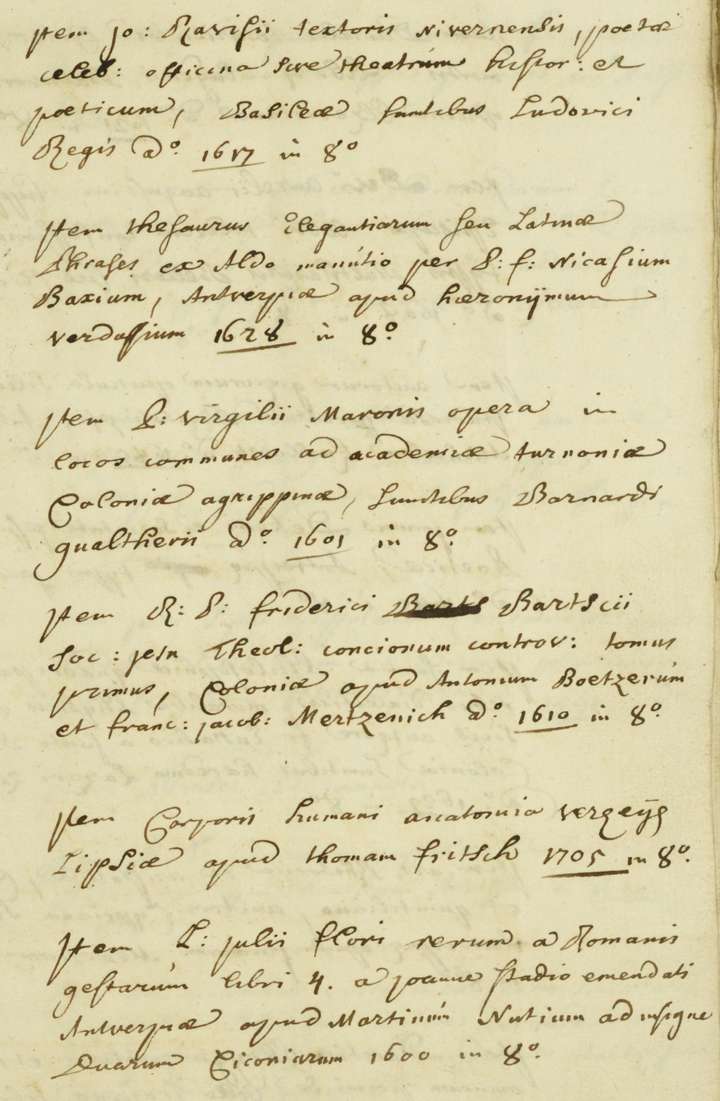 Item Jo: Ravisii textoris Nivernensis, poetæ
celeb: officina sive theatrúm histor: et
poeticum, Basileæ sumtibus Ludovici
Regis aº. 1617 in 8º
Item thesaurus Elegantiarum seu Latinæ
Phrases ex Aldo manútio per P: f: Nicasium
Baxium, Antverpiæ apud hæronÿmum
verdussium 1628 in 8º.
Item P: virgilii Maronis opera in
locos communes ad academiæ turnoniæ
Coloniæ agrippinæ, sumtibus Barnardi
gualtherii aº. 1601 in 8º.
Item R: P: friderici Barts Bartscii
Soc: jesu Theol: concionum controv: tomus
primus, Coloniæ apud Antonium Boetzerúm
et franc: jacob: Mertzenich aº. 1610 in 8º.
Item Corporis humani anatomia
Lipsiæ apud thomam fritsch 1705 in 8º.
Item L: julii flori rerum a Romanis
gestarúm libri 4. a joanne stadio emendati
Antverpiæ apud Martinúm Nutium ad insigne
Duarum Ciconiarum 1600 in 8º.